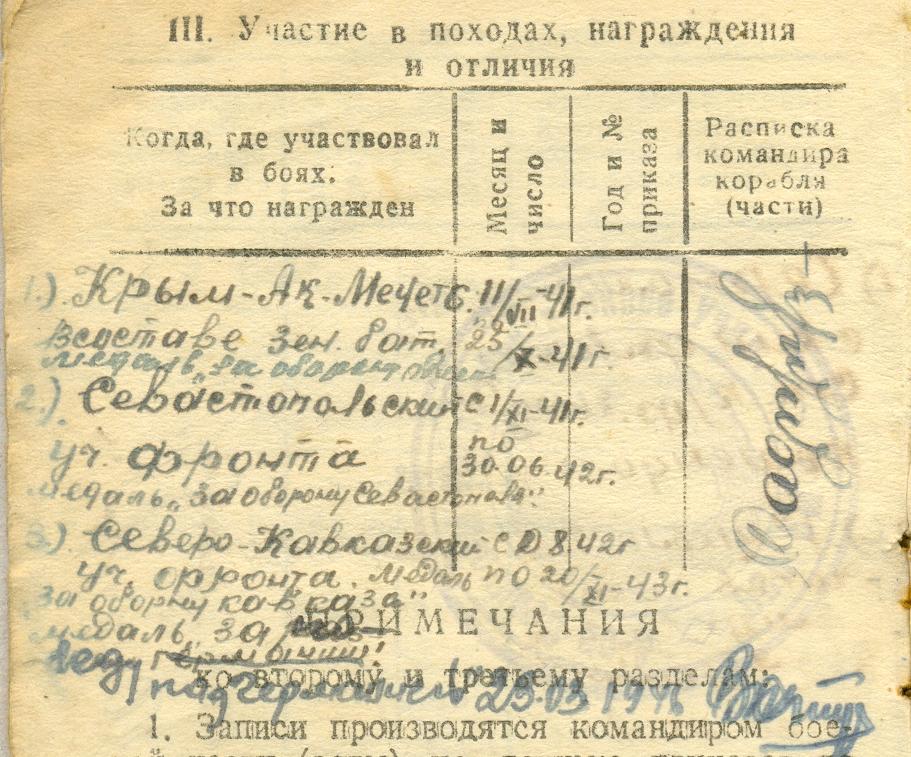 III. Участие в походах, награждения
и отличия
Когда, где участвовал
в боях.
За что награжден
Месяц и
число
Год и №
приказа
Расписка
командира
корабля
(части)
1.) Крым-Ак-Мечеть с 11/VII-41г.
в составе зен. бат. 25/X-41г.
медаль „за оборону
2.) Севастопольский с 1/XI-41г.
по
уч. фронта 30.06.42г.
медаль „за оборону Севастополя"
3.) Северо-Кавказский с 42г
уч. фронта. медаль по 20/XI-43г.
„за оборну кавказа"
ПРИМЕЧАНИЯ
медаль „за
ко второму и третьему разделам:
над Германией 23.03 1946
1. Записи производятся командиром бое-